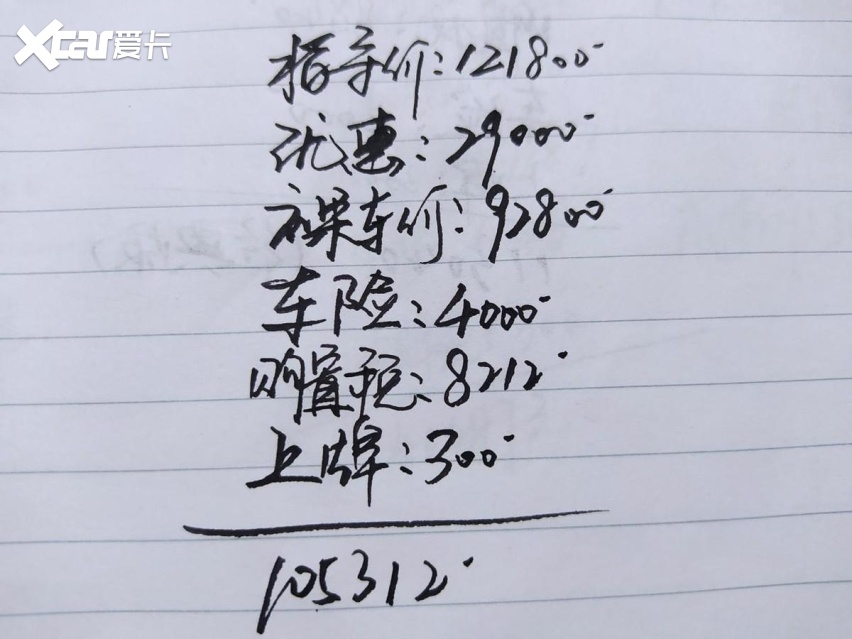 Xcar爱卡
指导价:121800
优惠:29000
裸车价:92800
车险:4000
购置税:8212
上牌:300
105312